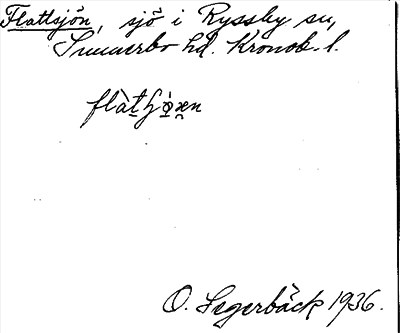 Flattsjön, sjö i Ryssby sn,
Sunnerbo hd. Kronob. l.
O. Segerbäck 1936.